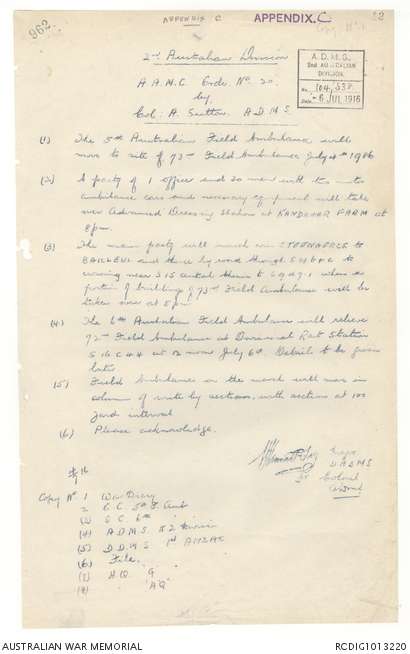 962
APPENDIX C
APPENDIX.C
Copy No 1
2nd Australian Division
A.A.M.C. Order No. 20
by
Col: A. Sutton A.D.M.S
A.D.M.S.
2nd AUSTRALIAN DIVISION.
No.
Date -6 JUL 1916
(1) The 5th Australian Field Ambulance will
move to site of 73rd Field Ambulance July 4th 1916
(2) A party of 1 officer and 20 men with two motor
ambulance cars and necessary equipment will take
over Advanced Dressing Station at KANDAHAR FARM at
8 pm.
(3) The main party will march via STEENWERCK to
BAILLEUL and there by road through
crossing near S15 central thence to where a
portion of building of 73rd Field Ambulance will be
taken over at 5 pm
(4) The 6th Australian Field Ambulance will relieve
72nd Field Ambulance at Divisional Rest Station
S16C44 at 12 noon July 6th. Details to be given
later
(5) Field Ambulances on the march will move in
column of route by sections, with sections at 100
yard interval
(6) Please acknowledge.
Major
D.A.D.M.S
for Colonel
A.D.M.S
Copy No 1 War Diary
2 O.C. 5th F. Amb
(3) O.C. 6th "
(4) A.D.M.S.
(5) D.D.M.S. 1st ANZAC
(6) File
(7) H.Q. "G"
(8) " "AQ"
AUSTRALIAN WAR MEMORIAL
RCDIG1013220